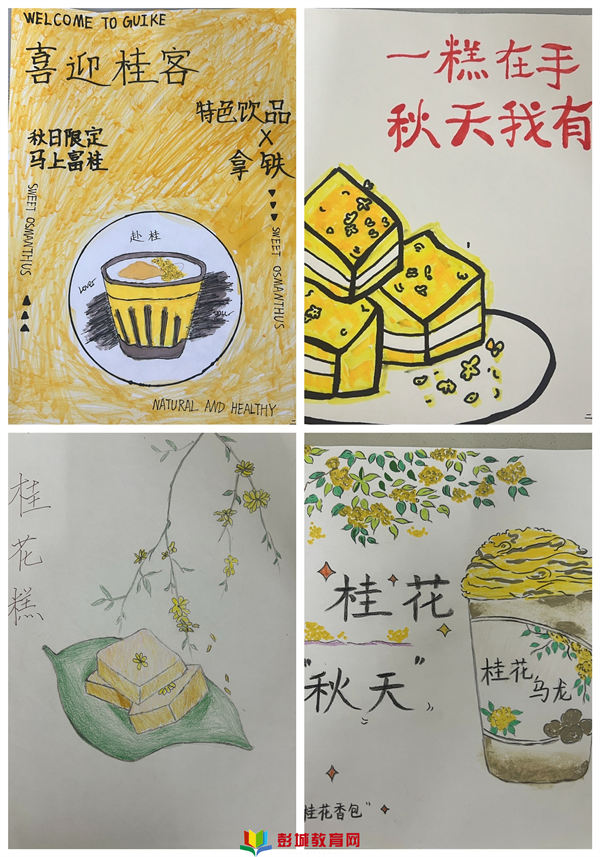 WELCOME TO GUIKE
喜迎桂客
特色饮品
X
拿铁
秋日限定
马上富桂
SWEET OSMANTHUS
SWEET OSMANTHUS
赴桂
Lover
you
NATURAL AND HEALTHY
一糕在手
秋天我有
二
桂花糕
桂花
"秋天"
桂花
乌龙
桂花香包"
彭城教育网